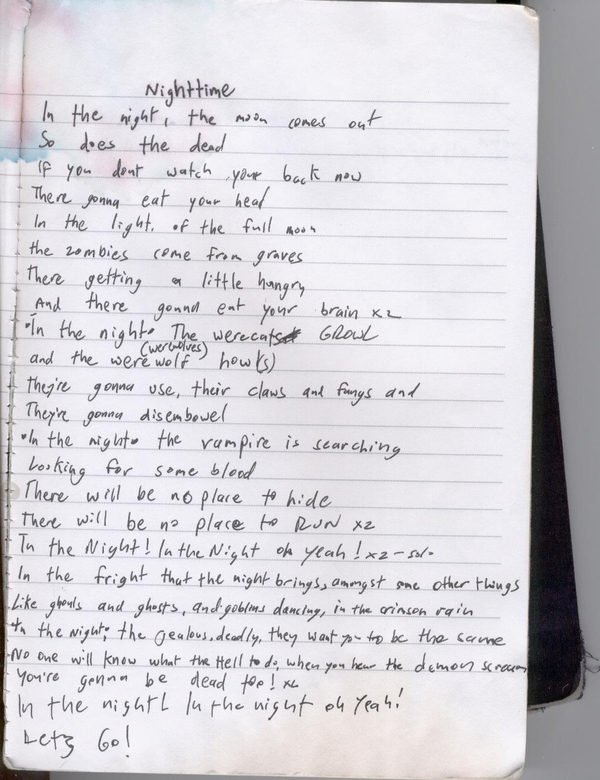 Nighttime
In the night, the moon comes out
So does the dead
If you dont watch your back now
There gonna eat your head
In the light of the full moon
the zombies come from graves
There getting a little hungry
And there gonna eat your brain x2
•In the night• The werecats GROWL
(werwolves)
and the werewolf how(s)
they're gonna use, their claws and fangs and
They're gonna disembowel
•In the night• the vampire is searching
Looking for some blood
There will be no place to hide
There will be no place to RUN x2
In the Night! In the Night oh yeah! x2 - solo
In the fright that the night brings, amongst some other things
Like ghouls and ghosts, and goblins dancing, in the crimson rain
In the night, the jealous, deadly, they want you to be the same
No one will know what the Hell to do, when you hear the demon scream
You're gonna be dead too! x2
In the night! In the night oh Yeah!
Lets Go!